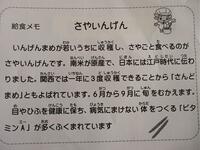 給食メモ
さやいんげん
いんげんまめが若いうちに収穫し、さやごと食べるのが
さやいんげんです。南米が原産で、日本には江戸時代に伝わ
りました。関西では一年に3度収穫できることから「さんど
まめ」ともよばれています。6月から9月に旬をむかえます。
目やひふを健康に保ち、病気にまけない体をつくる「ビタ
ミンA」が多くふくまれています